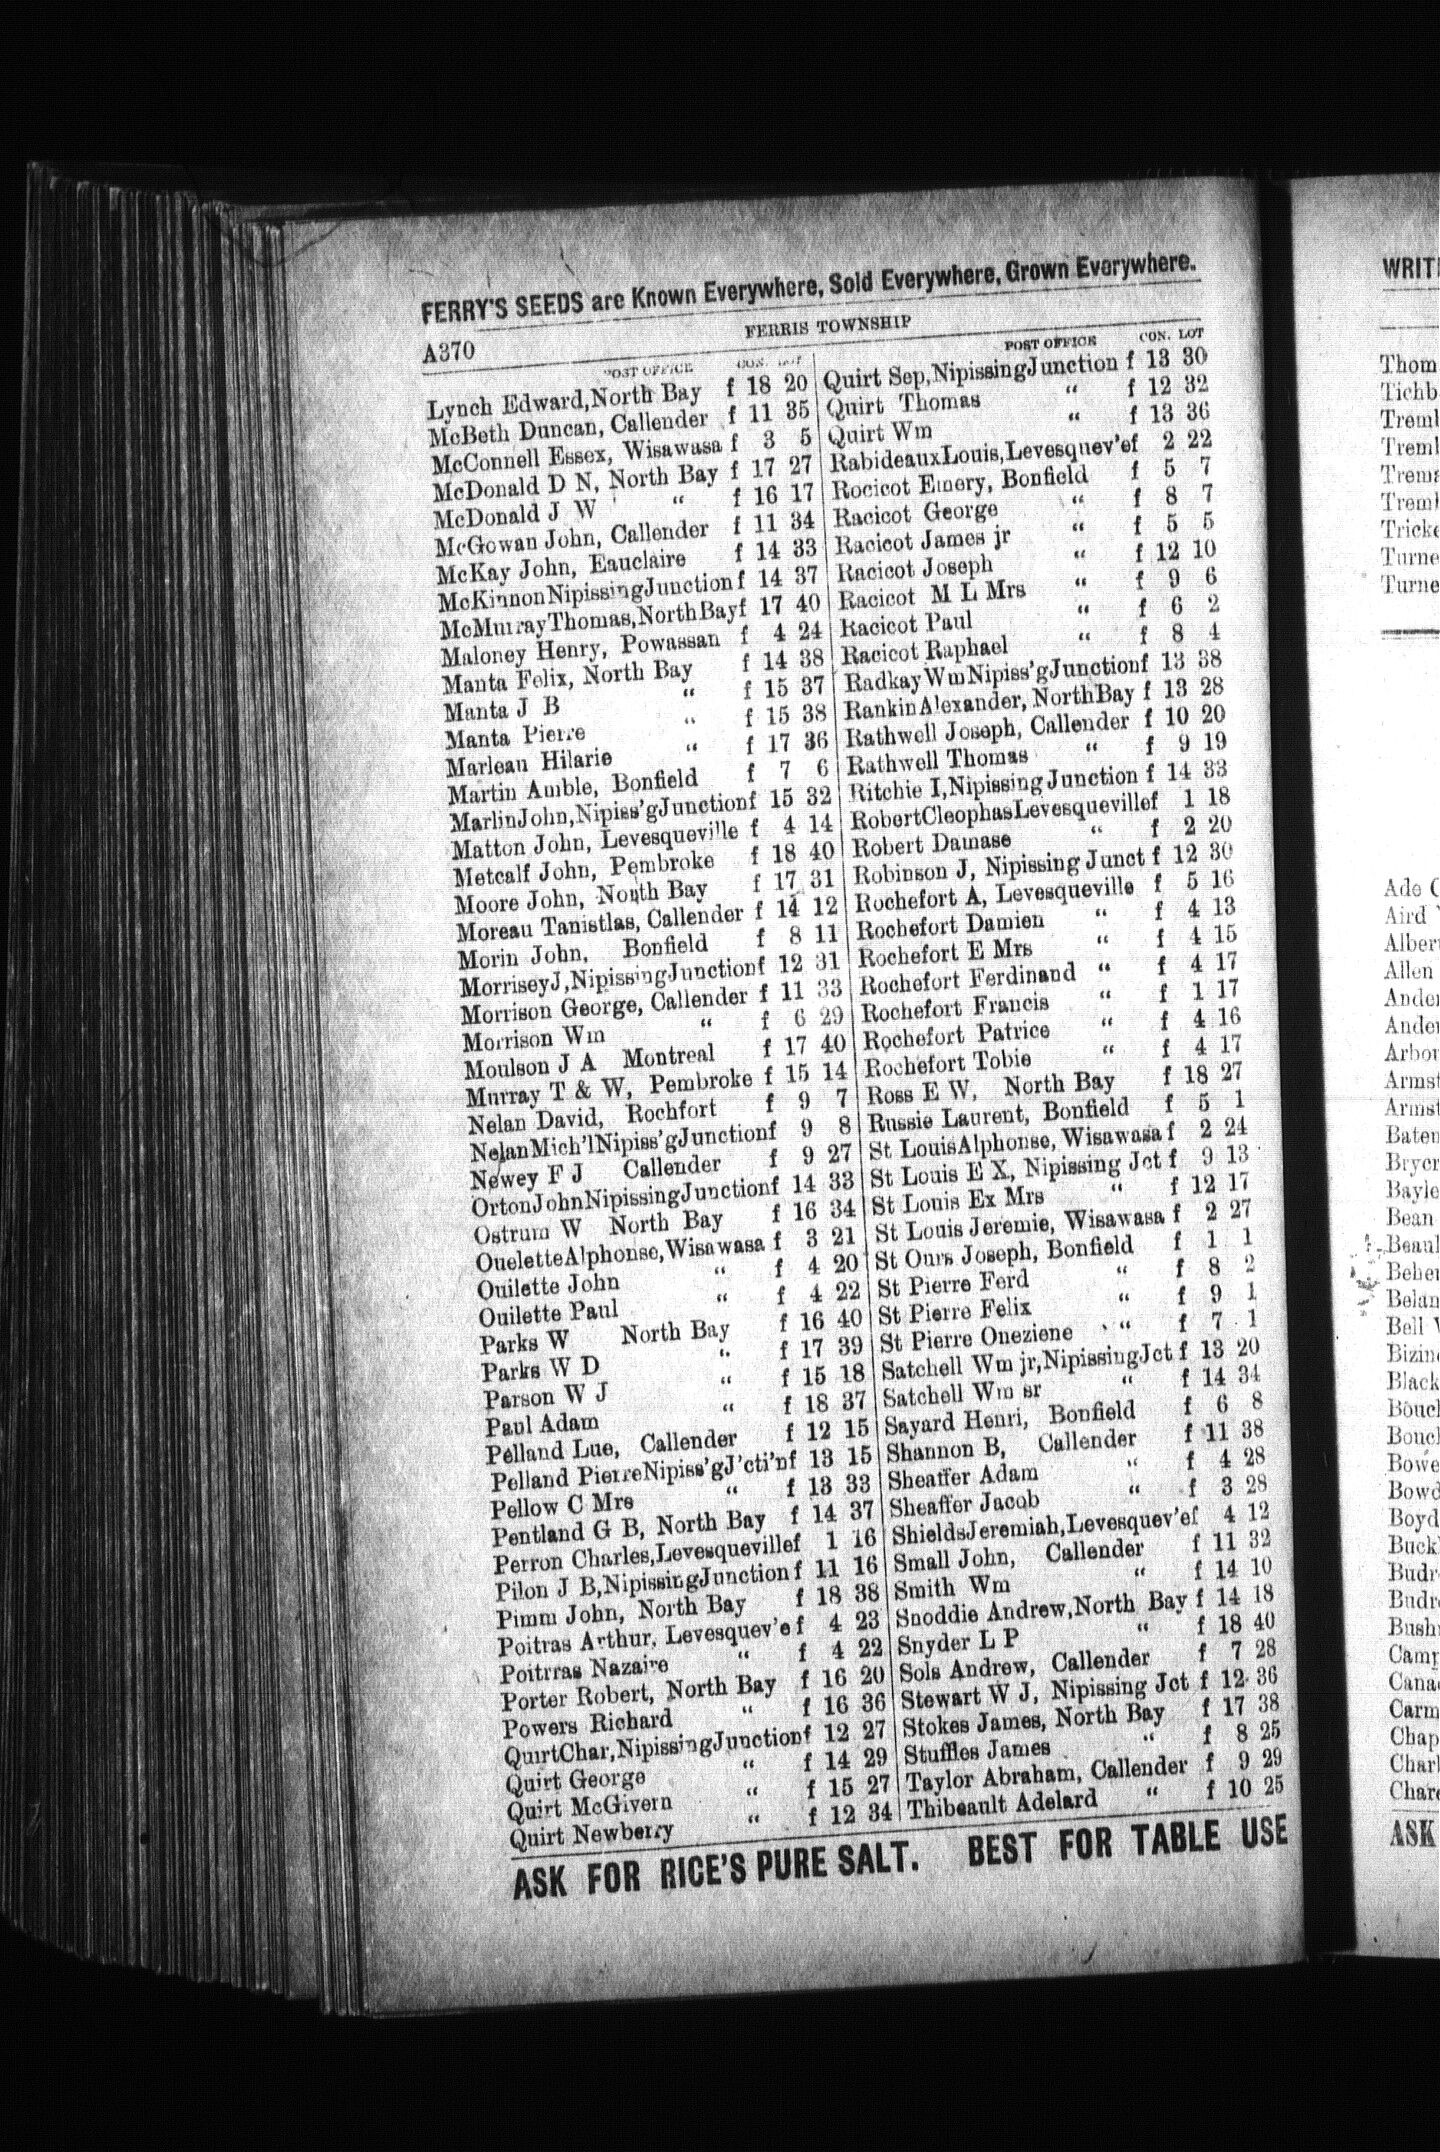 FERRY'S SEEDS are Known Everywhere, Sold Everywhere, Grown Everywhere.
A370
FERRIS TOWNSHIP
POST OFFICE CON. LOT
Lynch Edward, North Bay f 18 20
McBeth Duncan, Callender f 11 35
McConnell Essex, Wisawasa f 3 5
McDonald D N, North Bay f 17 27
McDonald J W " f 16 17
McGowan John, Callender f 11 34
McKay John, Eauclaire f 14 33
McKinnon Nipissing Junction f 14 37
McMurray Thomas, North Bay f 17 40
Maloney Henry, Powassan f 4 24
Manta Felix, North Bay f 14 38
Manta J B " f 15 37
Manta Pierre " f 15 38
Marleau Hilarie " f 17 36
Martin Amble, Bonfield f 7 6
Marlin John, Nipiss'g Junction f 15 32
Matton John, Levesqueville f 4 14
Metcalf John, Pembroke f 18 40
Moore John, North Bay f 17 31
Moreau Tanistlas, Callender f 14 12
Morin John, Bonfield f 8 11
Morrisey J, Nipissing Junction f 12 31
Morrison George, Callender f 11 33
Morrison Wm " f 6 29
Moulson J A Montreal f 17 40
Murray T & W, Pembroke f 15 14
Nelan David, Rochfort f 9 7
Nelan Mich'l Nipiss'g Junction f 9 8
Newey F J Callender f 9 27
Orton John Nipissing Junction f 14 33
Ostrum W North Bay f 16 34
Ouelette Alphonse, Wisawasa f 3 21
Ouilette John " f 4 20
Ouilette Paul " f 4 22
Parks W North Bay f 16 40
Parks W D " f 17 39
Parson W J " f 15 18
Paul Adam " f 18 37
Pelland Lue, Callender f 12 15
Pelland Pierre Nipiss'g J'cti'n f 13 15
Pellow C Mrs " f 13 33
Pentland G B, North Bay f 14 37
Perron Charles, Levesqueville f 1 16
Pilon J B, Nipissing Junction f 11 16
Pimm John, North Bay f 18 38
Poitras Arthur, Levesquev'e f 4 23
Poitrras Nazaire " f 4 22
Porter Robert, North Bay f 16 20
Powers Richard " f 16 36
Quirt Char, Nipissing Junction f 12 27
Quirt George " f 14 29
Quirt McGivern " f 15 27
Quirt Newberry " f 12 34
POST OFFICE CON. LOT
Quirt Sep, Nipissing Junction f 13 30
Quirt Thomas " f 12 32
Quirt Wm " f 13 36
Rabideaux Louis, Levesquev'e f 2 22
Rocicot Emery, Bonfield f 5 7
Racicot George " f 8 7
Racicot James jr " f 5 5
Racicot Joseph " f 12 10
Racicot M L Mrs " f 9 6
Racicot Paul " f 6 2
Racicot Raphael " f 8 4
Radkay Wm Nipiss'g Junction f 13 38
Rankin Alexander, North Bay f 13 28
Rathwell Joseph, Callender f 10 20
Rathwell Thomas " f 9 19
Ritchie I, Nipissing Junction f 14 33
Robert Cleophas Levesqueville f 1 18
Robert Damase " f 2 20
Robinson J, Nipissing Junct f 12 30
Rochefort A, Levesqueville f 5 16
Rochefort Damien " f 4 13
Rochefort E Mrs " f 4 15
Rochefort Ferdinand " f 4 17
Rochefort Francis " f 1 17
Rochefort Patrice " f 4 16
Rochefort Tobie " f 4 17
Ross E W, North Bay f 18 27
Russie Laurent, Bonfield f 5 1
St Louis Alphonse, Wisawasa f 2 24
St Louis E X, Nipissing Jct f 9 13
St Louis Ex Mrs " f 12 17
St Louis Jeremie, Wisawasa f 2 27
St Ours Joseph, Bonfield f 1 1
St Pierre Ferd " f 8 2
St Pierre Felix " f 9 1
St Pierre Oneziene " f 7 1
Satchell Wm jr, Nipissing Jct f 13 20
Satchell Wm sr " f 14 34
Sayard Henri, Bonfield f 6 8
Shannon B, Callender f 11 38
Sheaffer Adam " f 4 28
Sheaffer Jacob " f 3 28
Shields Jeremiah, Levesquev'e f 4 12
Small John, Callender f 11 32
Smith Wm " f 14 10
Snoddie Andrew, North Bay f 14 18
Snyder L P " f 18 40
Sols Andrew, Callender f 7 28
Stewart W J, Nipissing Jct f 12 36
Stokes James, North Bay f 17 38
Stuffles James " f 8 25
Taylor Abraham, Callender f 9 29
Thibeault Adelard " f 10 25
ASK FOR RICE'S PURE SALT. BEST FOR TABLE USE
Thom
Tichb
Trem
Turne
Turne
Ade
Aird
Allen
Bean
Bell
ASK